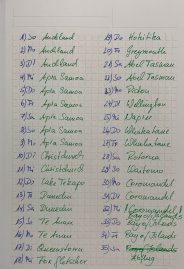 1) So Auckland
2) Mo Auckland
3) Di Auckland
4) Mi Apia Samoa
5) Do Apia Samoa
6) Fr Apia Samoa
7) Sa Apia Samoa
8) So Apia Samoa
9) Mo Apia Samoa
10) Di Christchurch
11) Mi Christchurch
12) Do Lake Tekapo
13) Fr Dunedin
14) Sa Dunedin
15) So Te Anau
16) Mo Te Anau
17) Di Queenstown
18) Mi Fox Gletscher
19) Do Hokitika
20) Fr Greymouth
21) Sa Abel Tasman
22) So Abel Tasman
23) Mo Picton
24) Di Wellington
25) Mi Napier
26) Do Whakatane
27) Fr Whakatane
28) Sa Rotorua
29) So Waitomo
30) Mo Coromandel
31) Di Coromandel
Coromandel
Bay of Islands
Bay of Islands